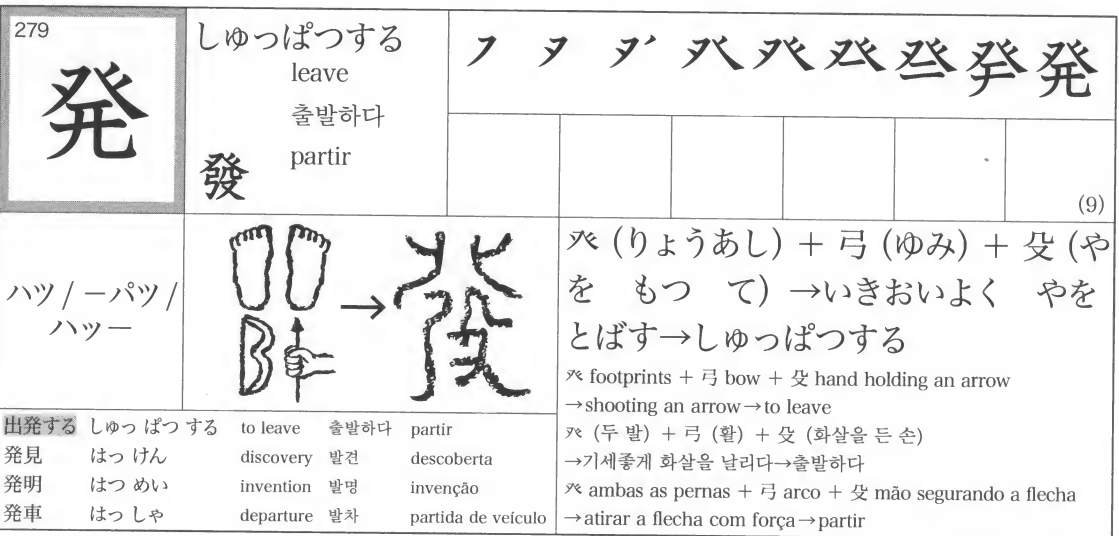 279
発
しゅっぱつする
leave
출발하다
partir
發
ノ ヌ ヌ´ 癶 癶 癶 発 発 発
(9)
ハツ / －パツ /
ハッ－
癶 (りょうあし) + 弓 (ゆみ) + 殳 (や
を もつ て) →いきおいよく やを
とばす→しゅっぱつする
癶 footprints + 弓 bow + 殳 hand holding an arrow
→shooting an arrow→to leave
癶 (두 발) + 弓 (활) + 殳 (화살을 든 손)
→기세좋게 화살을 날리다→출발하다
癶 ambas as pernas + 弓 arco + 殳 mão segurando a flecha
→atirar a flecha com força→partir
出発する しゅっ ぱつ する to leave 출발하다 partir
発見 はっ けん discovery 발견 descoberta
発明 はつ めい invention 발명 invenção
発車 はっ しゃ departure 발차 partida de veículo